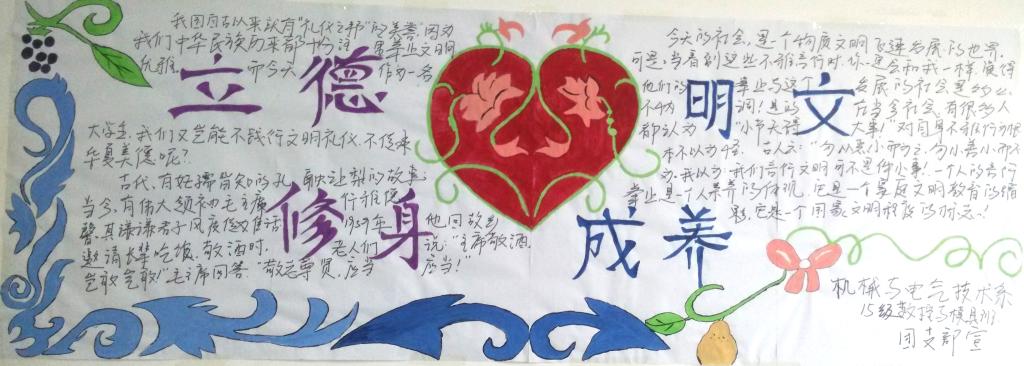 我国自古以来就有"礼仪之邦"的美誉,因为
我们中华民族历来都十分注 重举止文明
优雅。 而今天 作为一名
立德
大学生,我们又岂能不践行文明礼仪,不传承
华夏美德呢?
古代,有妇孺皆知的孔 融让梨的故事,
当今,有伟大领袖毛主席
1959年 他回故乡
邀请长辈吃饭,敬酒时, 老人们 说:"主席敬酒,
岂敢岂敢!"毛主席回答:"敬老尊贤,应当 应当!"
修身
今天的社会,是一个物质文明飞速发展的世界。
可是,当看到这些不雅言行时,你一定会和我一样,觉得
他们的 举止与这个 发展的社会是多么
不协 调!是的 在当今社会,有很多人
都认为 "小节无碍 大事!"对自身不雅行为很
不以为怪。古人云:"勿以恶小而为之,勿以善小而不
为。"我以为:我们言行文明可不是件小事!一个人的言行
举止是一个人素养的体现,它是一个家庭文明教育的缩
影,它是一个国家文明程度的标志!
明文
成养
机械与电气技术系
15级数控与模具班
团支部宣